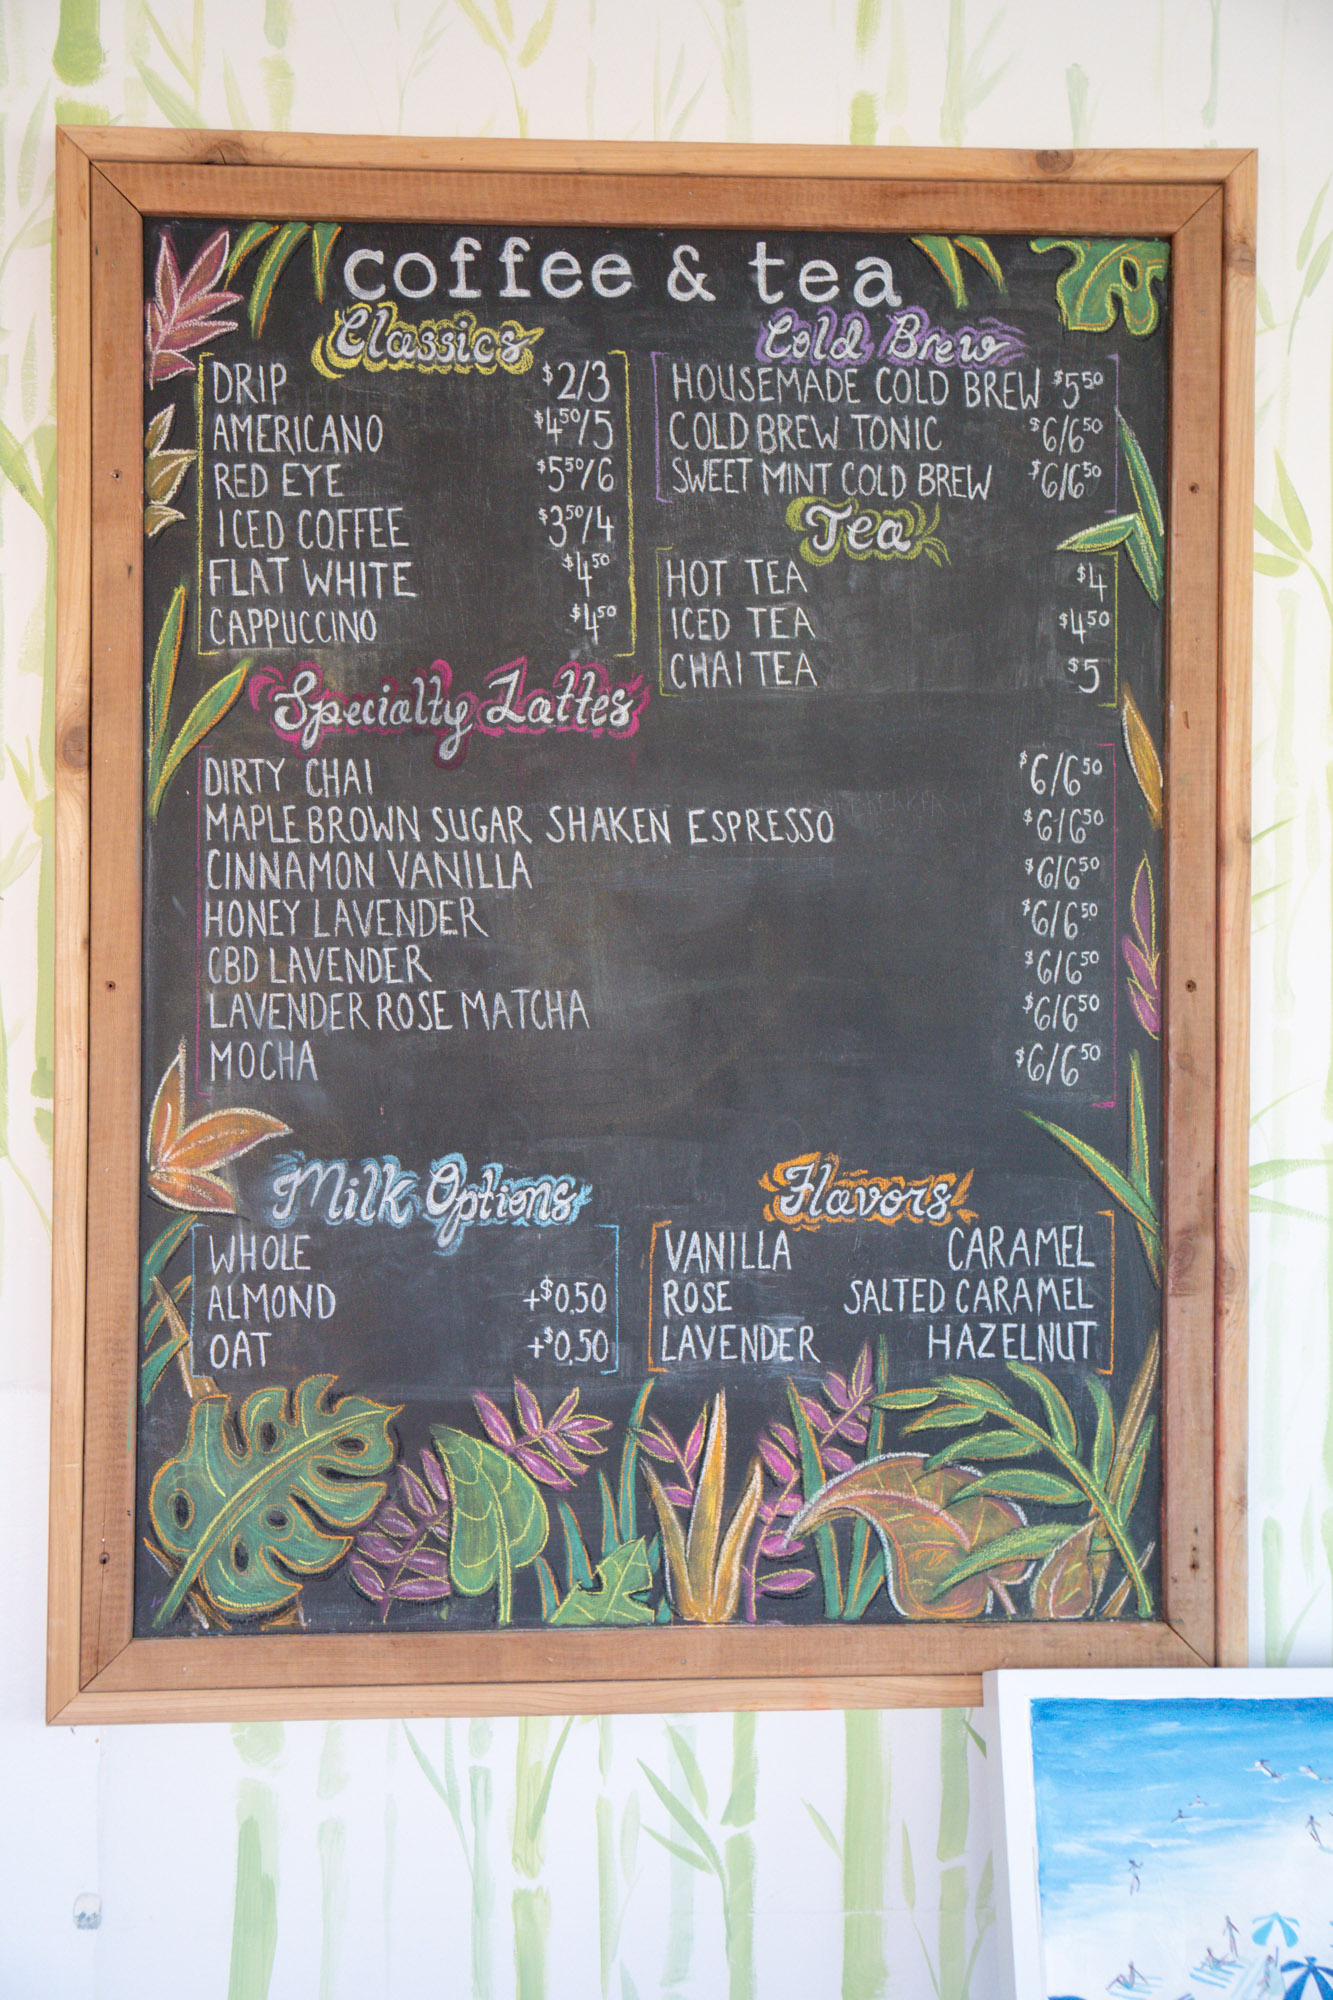 coffee & tea
Classics
DRIP $2/3
AMERICANO $450/5
RED EYE $550/6
ICED COFFEE $350/4
FLAT WHITE $450
CAPPUCCINO $450
Cold Brew
HOUSEMADE COLD BREW $550
COLD BREW TONIC $6/650
SWEET MINT COLD BREW $6/650
Tea
HOT TEA $4
ICED TEA $450
CHAI TEA $5
Specialty Lattes
DIRTY CHAI $6/650
MAPLE BROWN SUGAR SHAKEN ESPRESSO $6/650
CINNAMON VANILLA $6/650
HONEY LAVENDER $6/650
CBD LAVENDER $6/650
LAVENDER ROSE MATCHA $6/650
MOCHA $6/650
Milk Options
WHOLE
ALMOND +$0.50
OAT +$0.50
Flavors
VANILLA CARAMEL
ROSE SALTED CARAMEL
LAVENDER HAZELNUT